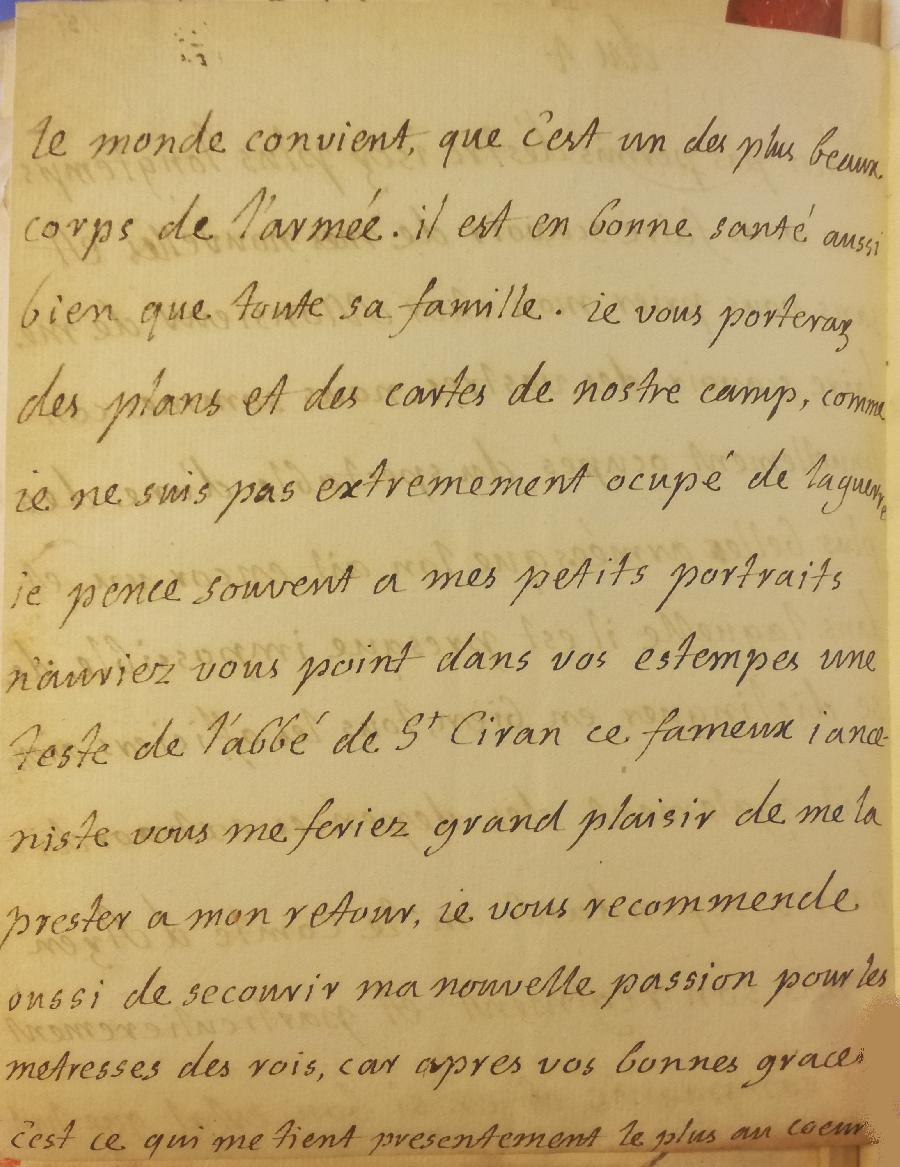 le monde convient, que c'est un des plus beaux
corps de l'armée. il est en bonne santé aussi
bien que toute sa famille. ie vous porteray
des plans et des cartes de nostre camp, comme
ie ne suis pas extremement ocupé de la guerre
ie pence souvent a mes petits portraits
n'auriez vous point dans vos estempes une
teste de l'abbé de St Ciran ce fameux iance-
niste vous me feriez grand plaisir de me la
prester a mon retour, ie vous recommende
aussi de secourir ma nouvelle passion pour les
metresses des rois, car apres vos bonnes graces
c'est ce qui me tient presentement le plus au coeur